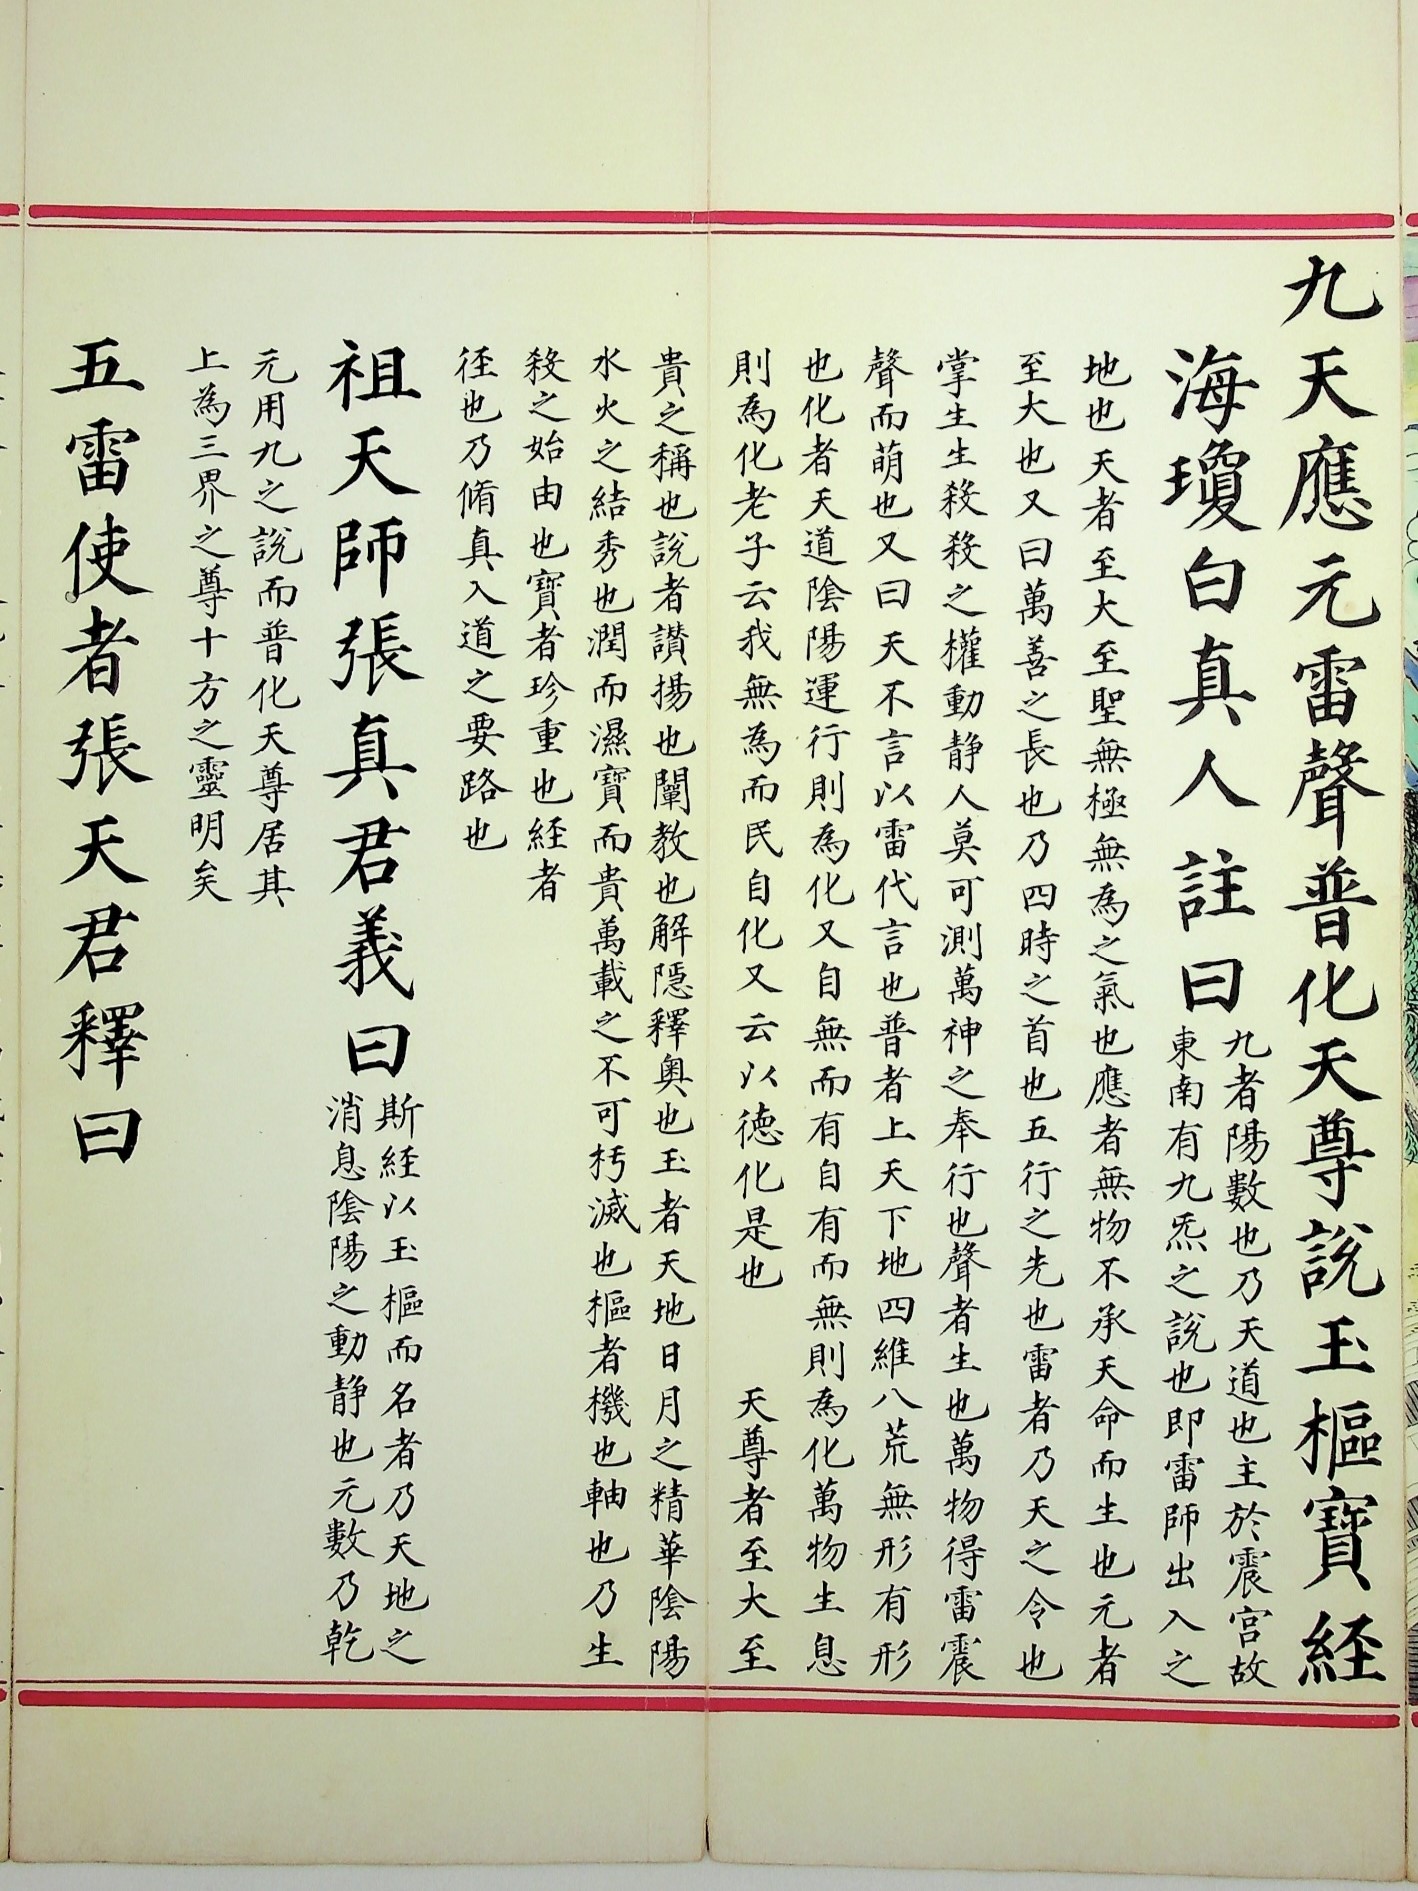 九天應元雷聲普化天尊說玉樞寶経
海瓊白真人註曰
九者陽數也乃天道也主於震宮故
東南有九炁之說也即雷師出入之
地也天者至大至聖無極無為之氣也應者無物不承天命而生也元者
至大也又曰萬善之長也乃四時之首也五行之先也雷者乃天之令也
掌生生殺殺之權動静人莫可測萬神之奉行也聲者生也萬物得雷震
聲而萌也又曰天不言以雷代言也普者上天下地四維八荒無形有形
也化者天道陰陽運行則為化又自無而有自有而無則為化萬物生息
則為化老子云我無為而民自化又云以德化是也　天尊者至大至
貴之稱也說者讃揚也闡教也解隱釋奧也玉者天地日月之精華陰陽
水火之結秀也潤而濕寶而貴萬載之不可朽滅也樞者機也軸也乃生
殺之始由也寶者珍重也経者
径也乃脩真入道之要路也
祖天師張真君義曰
斯経以玉樞而名者乃天地之
消息陰陽之動静也元數乃乾
元用九之說而普化天尊居其
上為三界之尊十方之靈明矣
五雷使者張天君釋曰